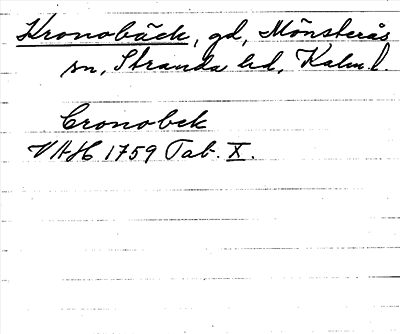 Kronobäck, gd, Mönsterås
sn, Stranda hd, Kalm l.
Cronobek
VAH 1759 Tab. X.